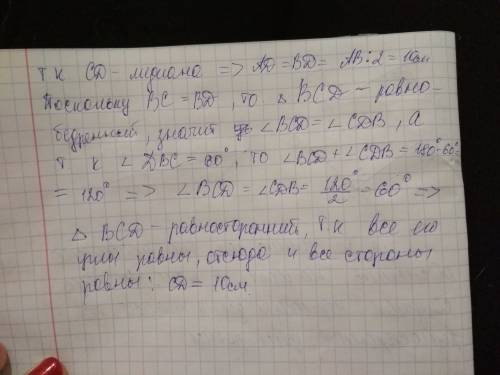 Т К CD - медиана => AD = BD = AB : 2 = 10см
Поскольку BC = BD, то △ BCD - равно-
бедренный, значит ∠BCD = ∠CDB, а
т к ∠ DBC = 60°, то ∠BCD + ∠CDB = 180°-60°
= 120° => ∠BCD = ∠CDB = 120°/2 = 60° =>
△ BCD - равносторонний, т.к все его
углы равны, отсюда и все стороны
равны: CD = 10см